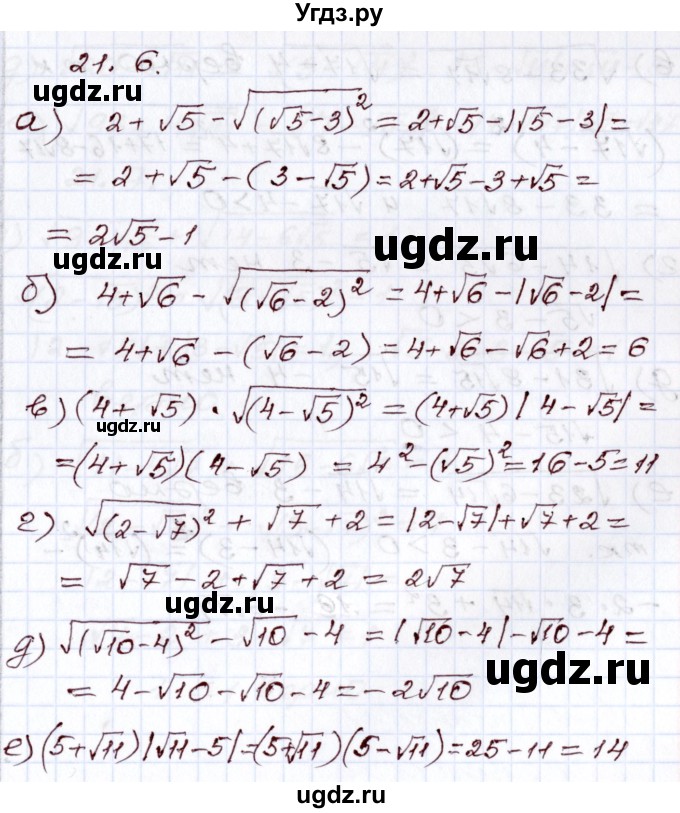 Угдз.ру
21.6.
ugdz.ru
а) 2 + √5 - √(√5-3)² = 2+√5 - |√5 - 3| =
= 2 + √5 - (3 - √5) = 2+√5 - 3 + √5 =
= 2√5 - 1
ugdz.ru
ugdz.ru
б) 4+√6 - √(√6-2)² = 4+√6 - |√6-2| =
= 4+√6 - (√6-2) = 4+√6-√6+2 = 6
в) (4+√5) · √(4-√5)² = (4+√5)|4-√5| =
ugdz.ru
= (4+√5)(4-√5) = 4² - (√5)² = 16-5 = 11
г) √(2-√7)² + √7 + 2 = |2-√7| + √7 + 2 =
= √7 - 2 + √7 + 2 = 2√7
ugdz.ru
д) √(√10-4)² - √10 - 4 = |√10-4| - √10 - 4 =
ugdz.ru
= 4 - √10 - √10 - 4 = -2√10
е) (5+√11)|√11-5| = (5+√11)(5-√11) = 25-11 = 14
ugdz.ru